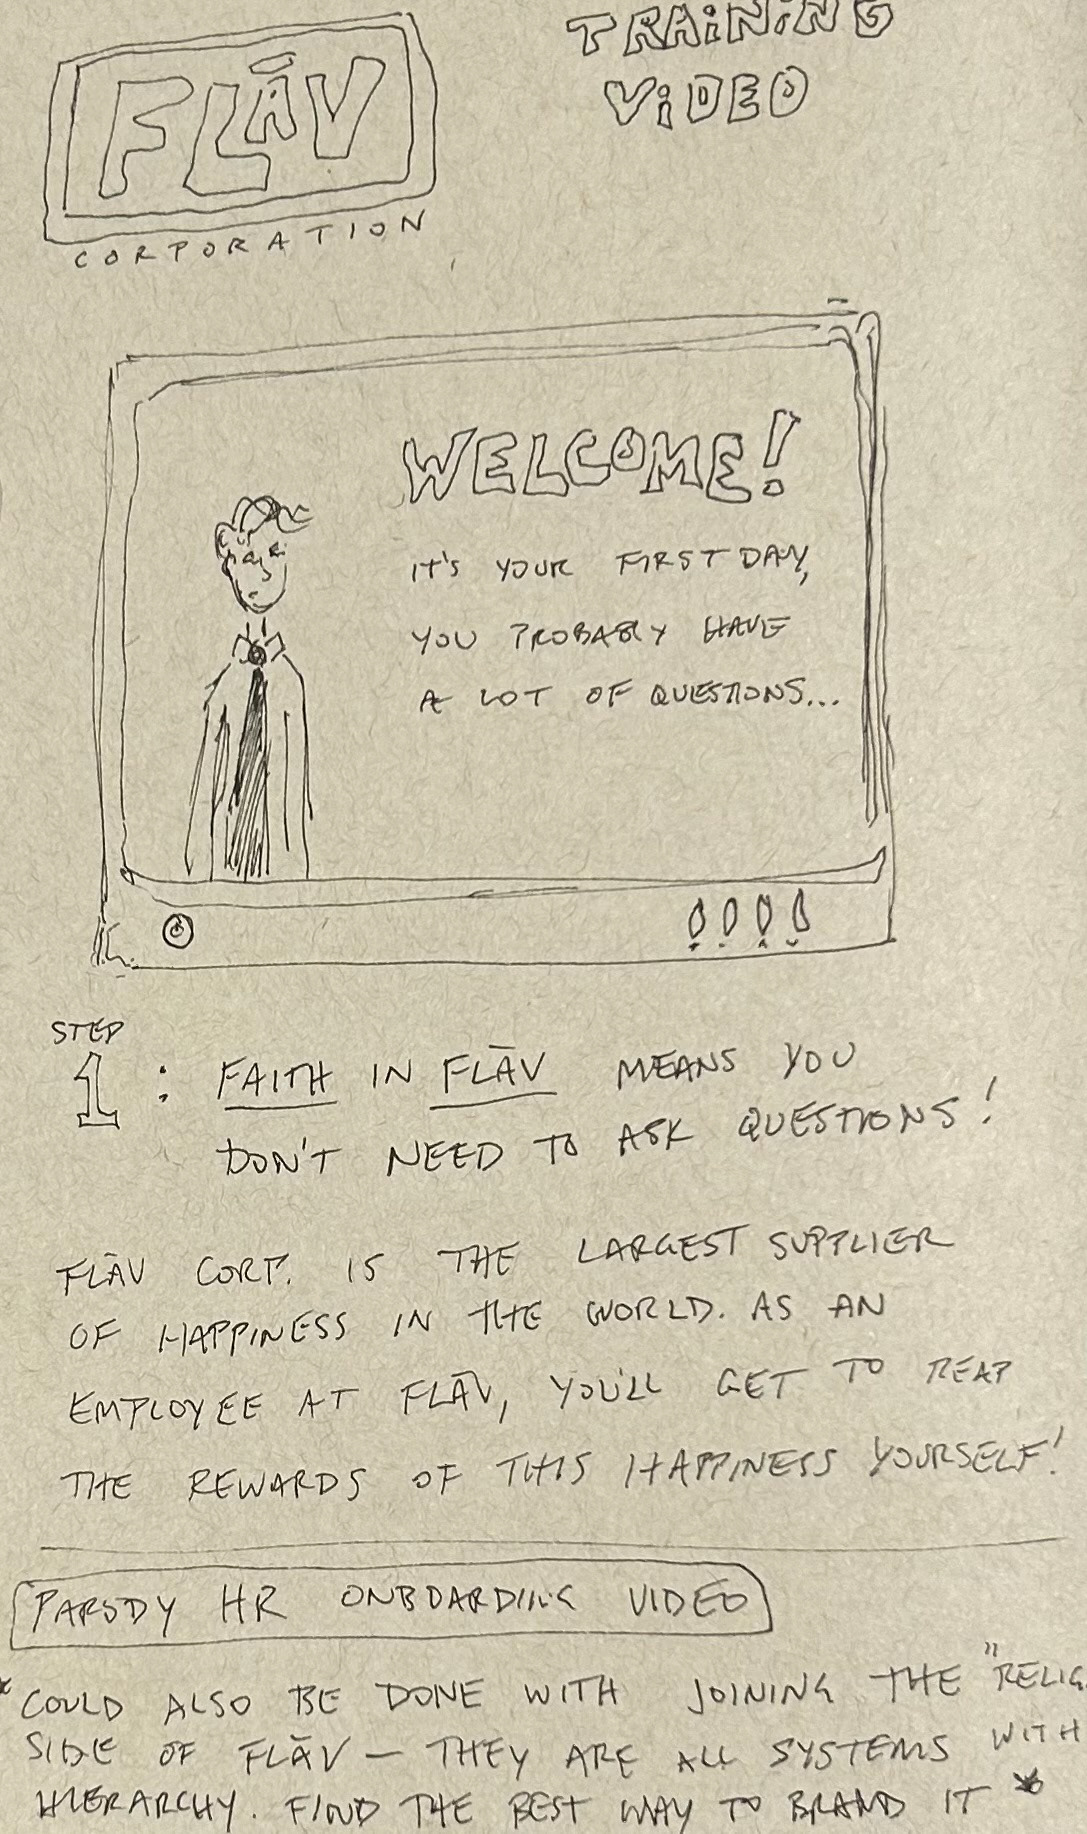 FLĀV
CORPORATION
TRAINING
VIDEO
WELCOME!
IT'S YOUR FIRST DAY,
YOU PROBABLY HAVE
A LOT OF QUESTIONS...
STEP
1 : FAITH IN FLĀV MEANS YOU
DON'T NEED TO ASK QUESTIONS!
FLĀV CORP. IS THE LARGEST SUPPLIER
OF HAPPINESS IN THE WORLD. AS AN
EMPLOYEE AT FLĀV, YOU'LL GET TO REAP
THE REWARDS OF THIS HAPPINESS YOURSELF!
PARODY HR ONBOARDING VIDEO
*COULD ALSO BE DONE WITH JOINING THE "RELIG
SIDE OF FLĀV — THEY ARE ALL SYSTEMS WITH
HIERARCHY. FIND THE BEST WAY TO BRAND IT *